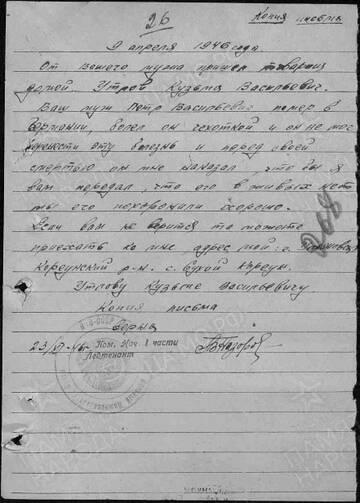 26
Копия письма
9 апреля 1946 года.
От Вашего мужа пришел товарищ
домой. Утлов Кузьма Васильевич.
Ваш муж Петр Васильевич помер в
Германии, болел он чехоткой и он не мог
болезнь и перед своей
смертью он мне наказал, что бы я
вам передал, что его в живых нет
мы его похоронили хорошо.
Если вам не верится то можете
приехать ко мне адрес мой:
р-н. с. Сухой
Утлову Кузьме Васильевичу.
Копия письма
Верна
23/VI-46г. Пом. Нач. 1 части
Лейтенант
208
ПАМЯТЬ НАРОДА